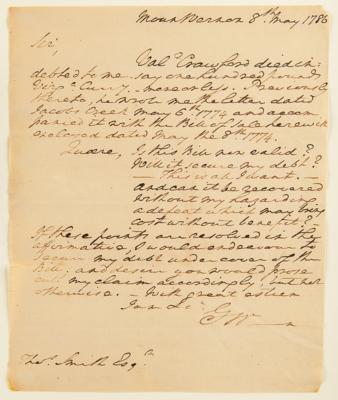 Mount Vernon 8th May 1786
Sir,
Val. Crawford died in-
debted to me say one hundred pounds
Virga. Curry. more or less. Previously
thereto, he wrote me the letter dated
Jacobs Creek May 6th 1774 and accom
panied it with the Bill of Sale herewith
enclosed dated May the 8th 1774.
Quære, Is this Bill now valid?
Will it secure my debt?
— this is all I want. —
and can it be recovered
without my hazarding
a defeat which may bring
cost without benefit?
If these points are resolved in the
affirmative, I would endeavour to
secure my debt under cover of the
Bill, and desire you would prose
cute my claim accordingly, but not
otherwise. — With great esteem
I am &c.
GW—n
Thos. Smith Esqr.